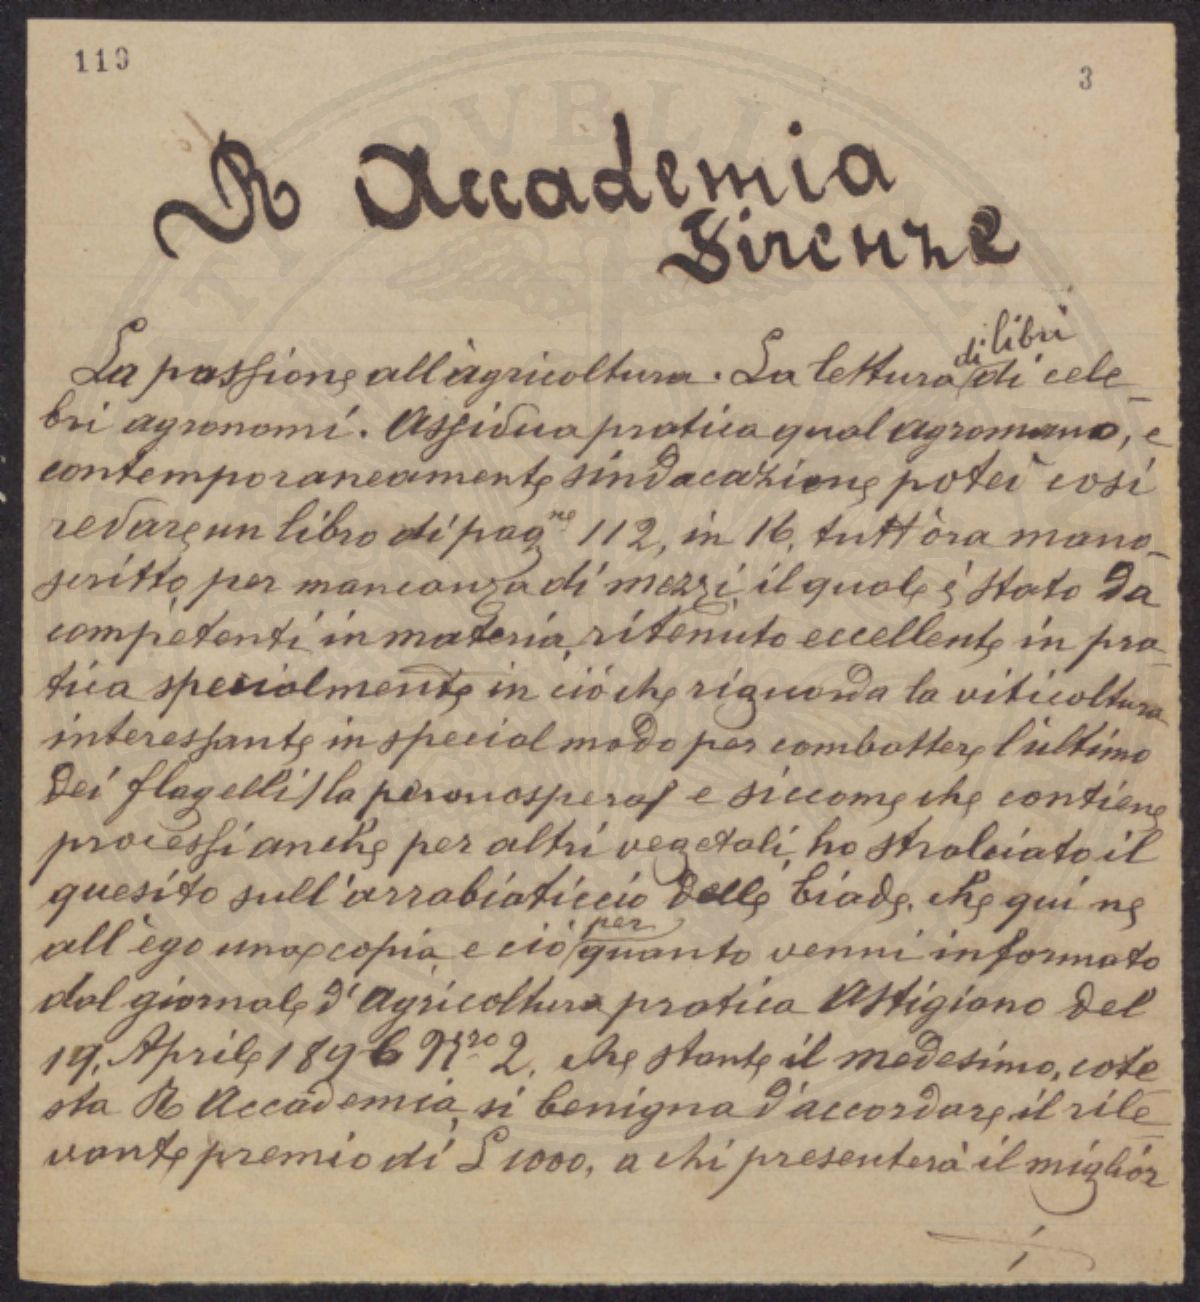 119
3
R Accademia
Firenze
di libri
La passione all'àgricoltura. La lettura di cele-
bri agronomi. Assidua pratica qual agromano, e
contemporaneamente sindacazione potei così
redare un libro di pagne 112, in 16. tutt'òra mano-
scritto per mancanza di mezzi, il quale è stato da
competenti in materia, ritenuto eccellente in pra-
tica specialmente in ciò che riguarda la viticoltura
interessante in special modo per combattere l'ultimo
dei flagelli / la peronospera / e siccome che contiene
processi anche per altri vegetali, ho stralciato il
quesito sull'arrabiaticcio delle biade. che qui ne
per
all'ègo una copia, e ciò quanto venni informato
dal giornale d'Agricoltura pratica Astigiano del
19. Aprile 1896 Nro 2. che stante il medesimo, cote-
sta R Accademia si benigna d'accordare il rile-
vante premio di L 1000, a chi presenterà il miglior